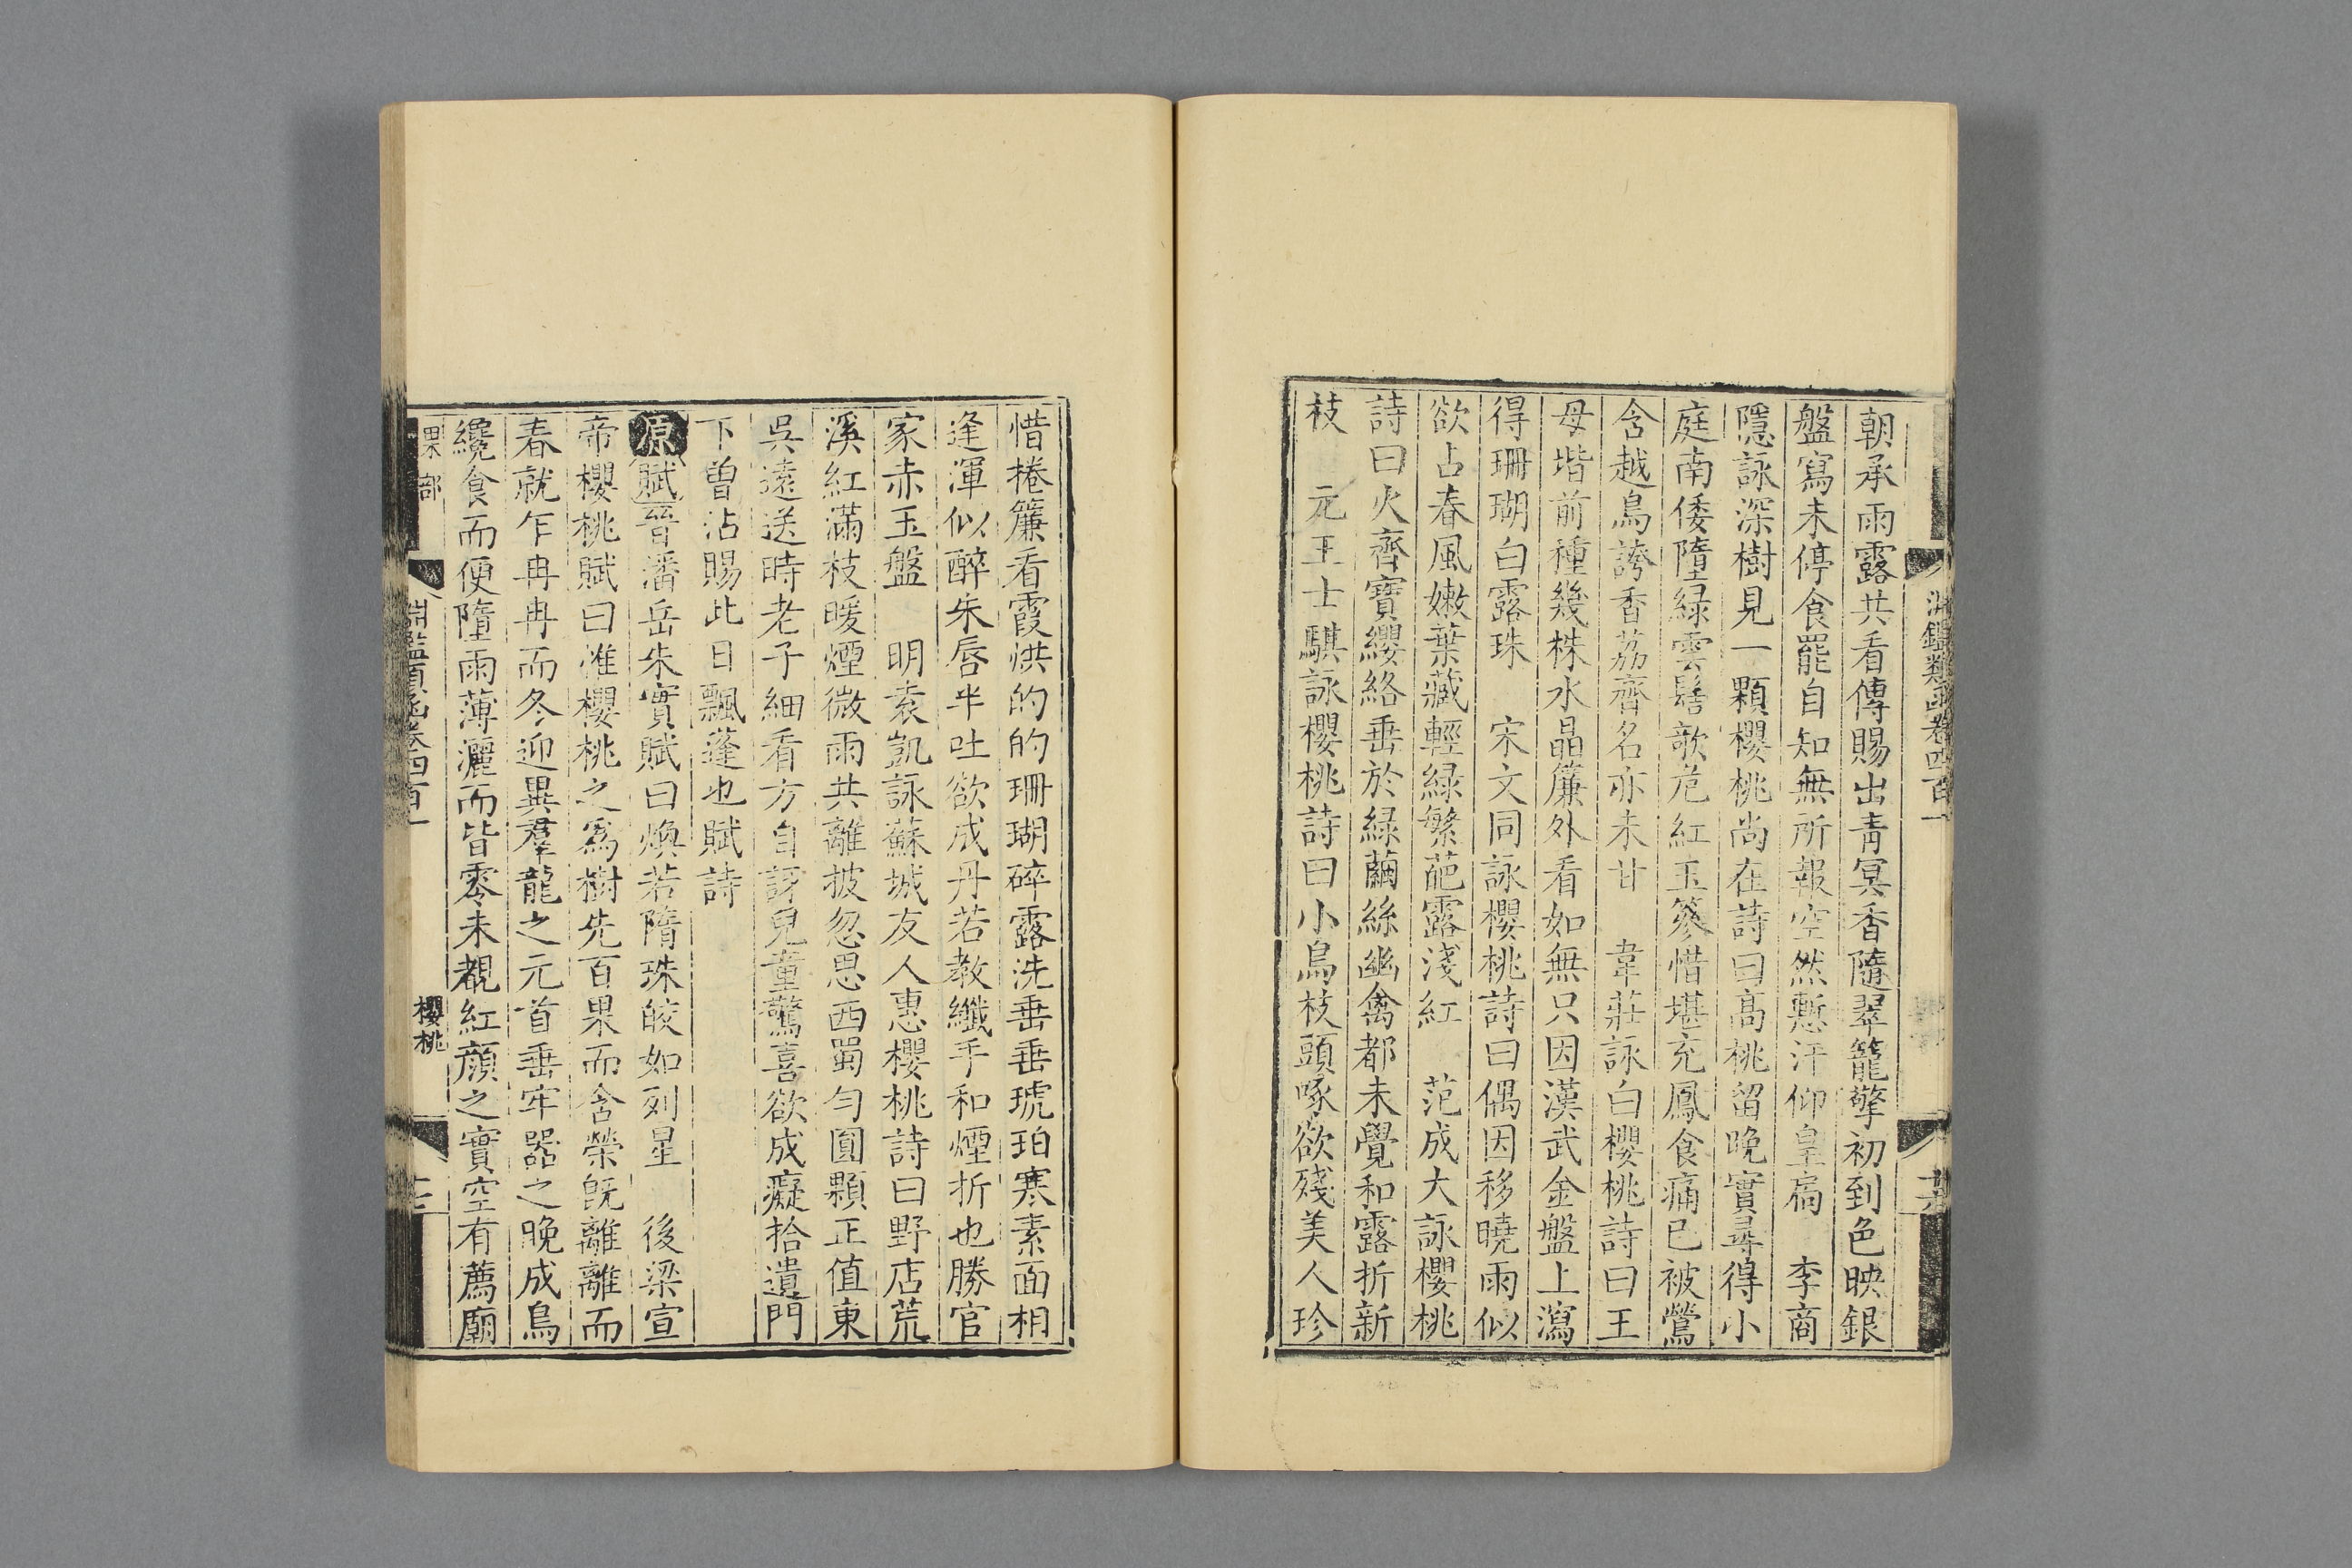 淵鑑類函卷四百一
朝承雨露共看傳賜出青冥香隨翠籠擎初到色映銀
盤寫未停食罷自知無所報空然慙汗仰皇扃　李商
隱詠深樹見一顆櫻桃尚在詩曰高桃留晚實尋得小
庭南倭隋綠雲髻欹危紅玉篸惜堪充鳳食痛已被鶯
含越鳥誇香荔齊名亦未甘　韋莊詠白櫻桃詩曰王
母堦前種幾株水晶簾外看如無只因漢武金盤上瀉
得珊瑚白露珠　宋文同詠櫻桃詩曰偶因移曉雨似
欲占春風嫩葉藏輕綠繁葩露淺紅　范成大詠櫻桃
詩曰火齊寶纓絡垂於綠繭絲幽禽都未覺和露折新
枝　元王士騏詠櫻桃詩曰小鳥枝頭啄欲殘美人珍
惜捲簾看霞烘的的珊瑚碎露洗垂垂琥珀寒素面相
逢渾似醉朱唇半吐欲成丹若教纖手和煙折也勝官
家赤玉盤　明袁凱詠蘇城友人惠櫻桃詩曰野店荒
溪紅滿枝暖煙微雨共離披忽思西蜀勻圓顆正值東
吳遠送時老子細看方自訝兒童驚喜欲成癡拾遺門
下曾沾賜此日飄蓬也賦詩
原賦晉潘岳朱實賦曰煥若隋珠皎如列星　後梁宣
帝櫻桃賦曰惟櫻桃之爲樹先百果而含榮旣離離而
春就乍冉冉而冬迎異羣龍之元首垂牢器之晚成鳥
纔食而便隋雨薄灑而皆零未覩紅顏之實空有薦廟
果部
淵鑑類函卷四百一
櫻桃